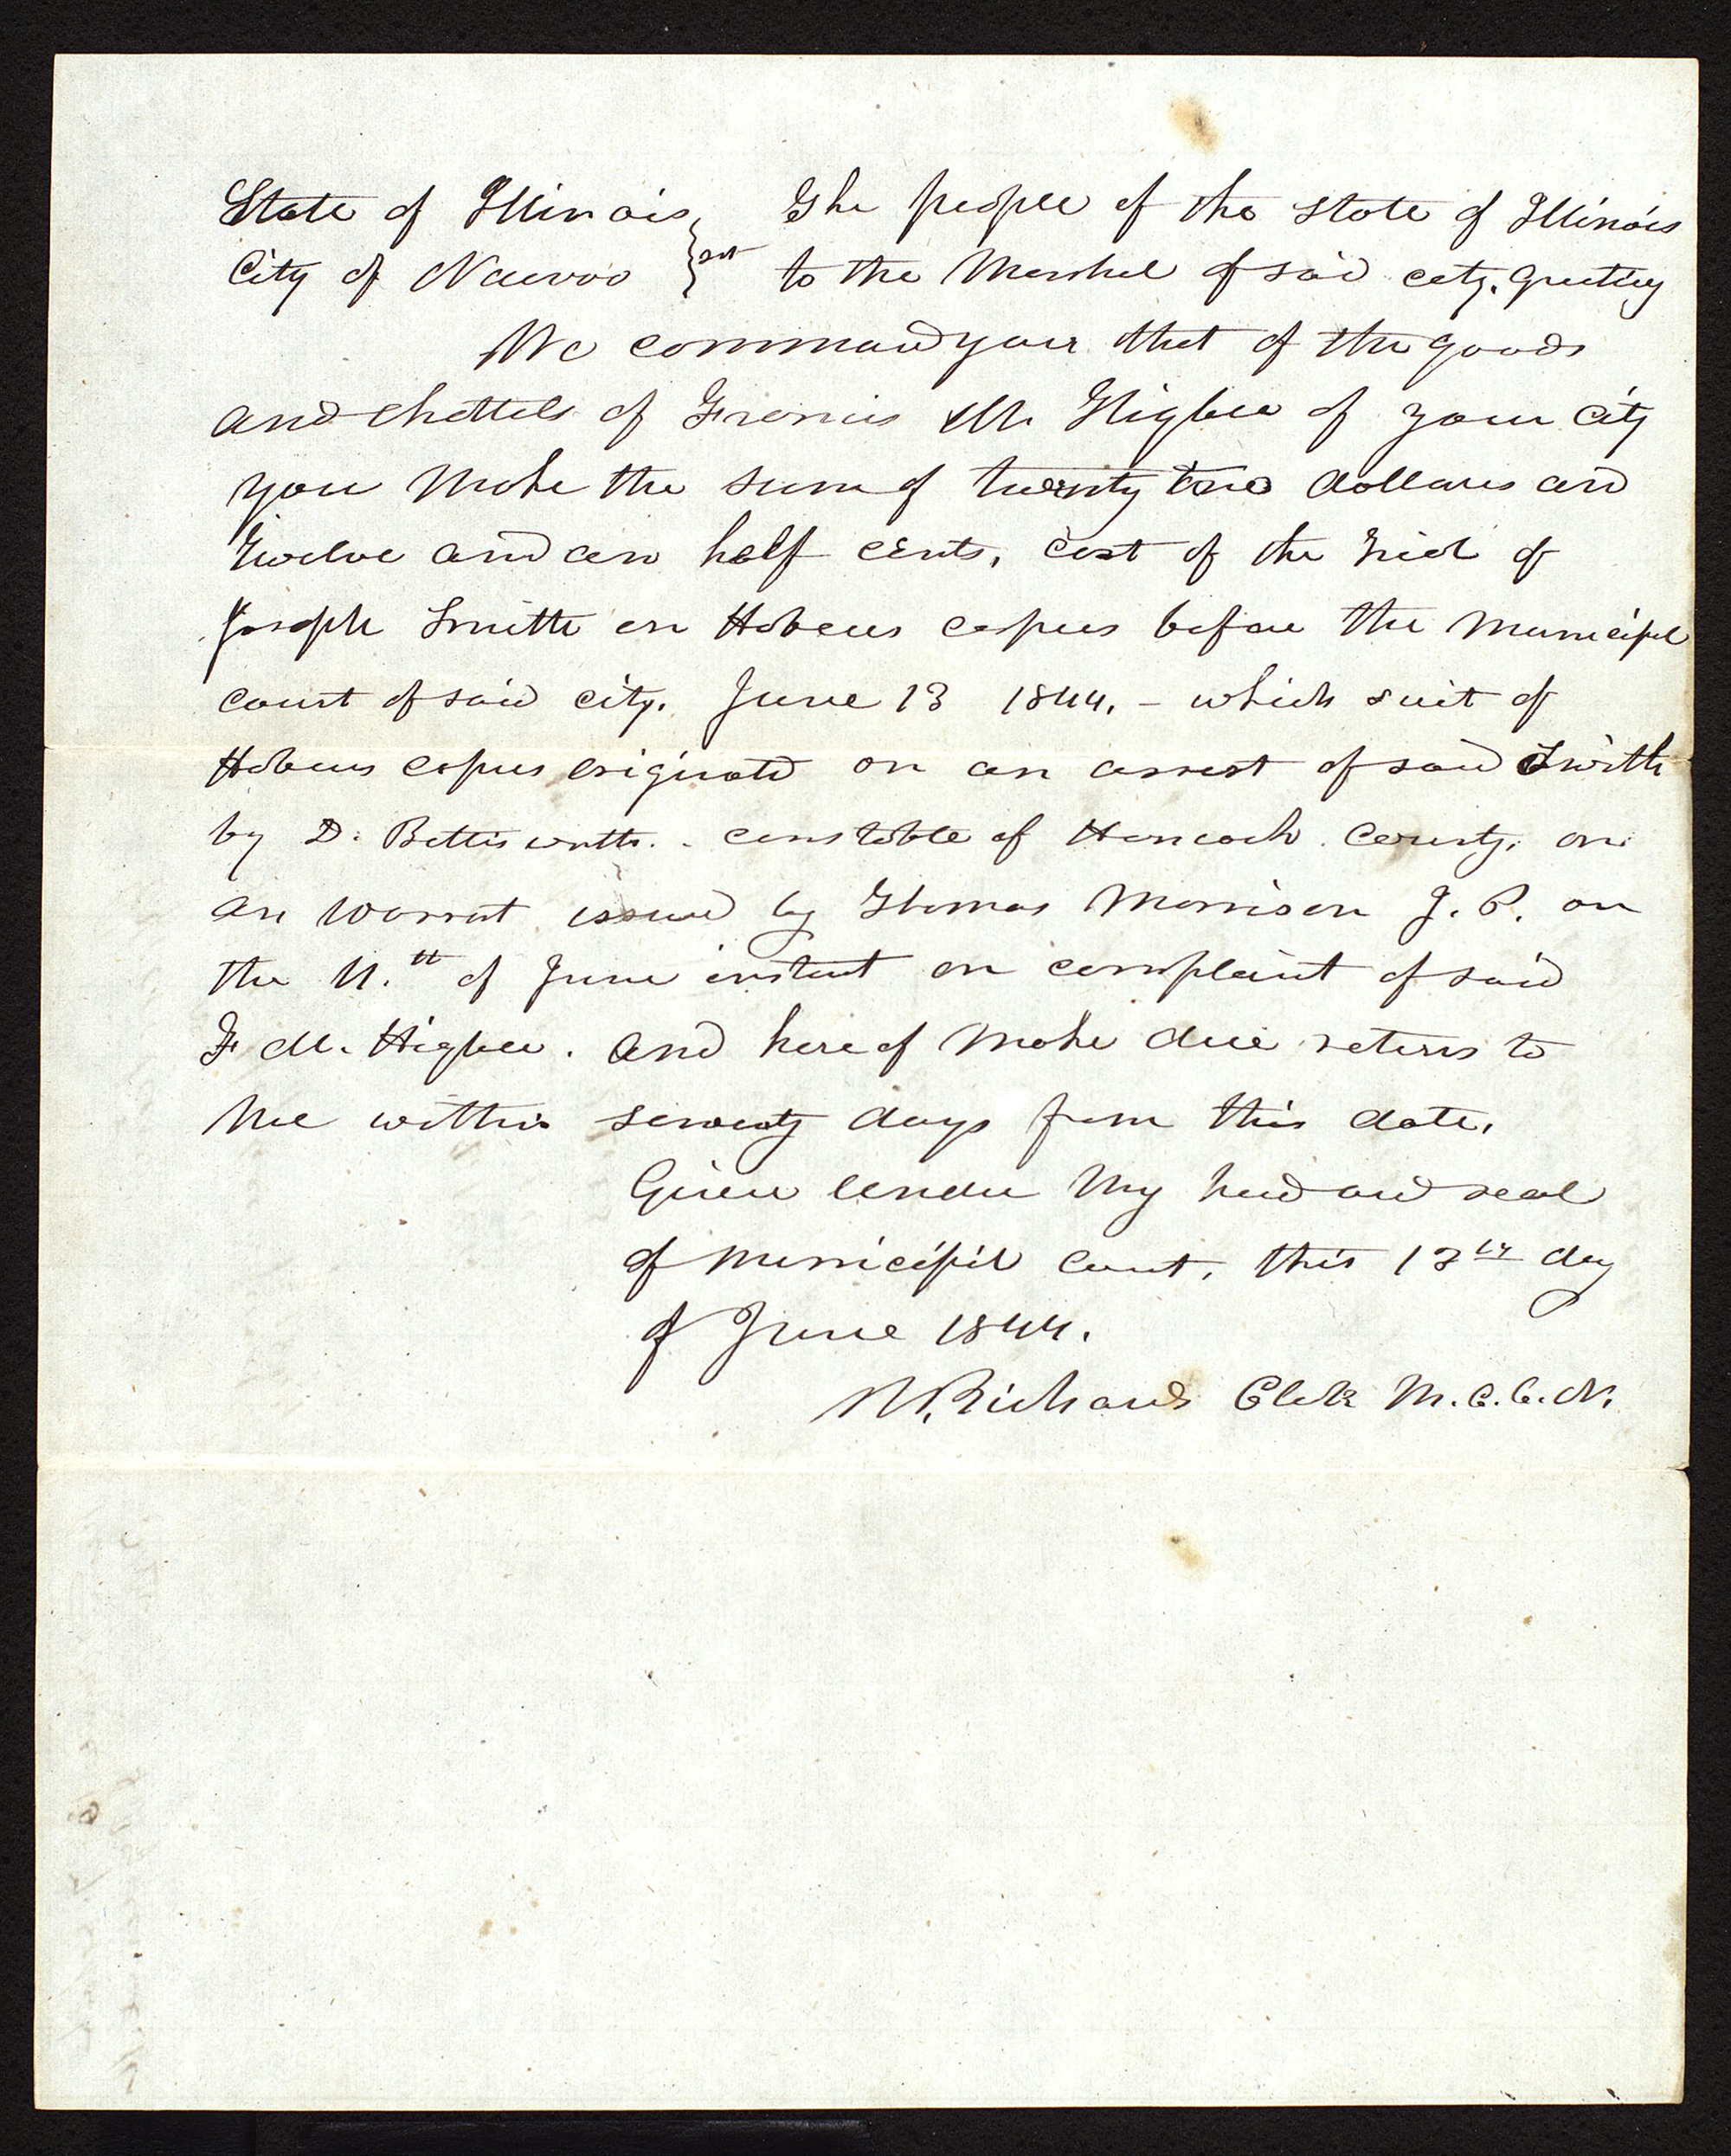 State of Illinois, } sct The people of the state of Illinois
City of Nauvoo } to the Marshal of said city. Greeting
We command you that of the goods
and chattels of Francis M. Higbee of your city
you make the sum of twenty two dollars and
twelve and an half cents, cost of the trial of
Joseph Smith on Habeus corpus before the Municipal
court of said city. June 13 1844. – which suit of
Habeus corpus originated on an arrest of said Smith
by D. Bettisworth. constable of Hancock County, on
an warrant issued by Thomas Morrison J. P. on
the 11.th of June instant on complaint of said
F. M. Higbee. and here of make due return to
me within seventy days from this date.
Given under my hand and seal
of Municipal Court, this 13th day
of June 1844.
W. Richards Clerk M. C. C. N.